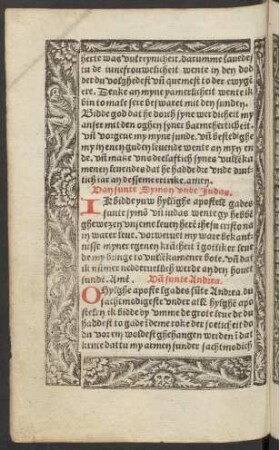 herte was vnkreynicheit. darumme sauerdes
tu de iuncfrouwelicheit wente in den dod
der du volghedest vñ quemest to der ewygē
ere. Denke an myne pamerlicheit wente ik
bin to male sere beswaret mit den sunden.
Bidde god dat he dorch syne werdicheit my
anseē mit den oghen syner barmherticheit.
vñ vorgeue my myne sunde. vñ bestedighe
my in enen guden leuende wente an myn en
de. vñ make vns deelaftich synes vulkāka
menen leuendes dat he hadde dor vnde dnuē
lich iar an dessem ertrike. amen.
Van sunte Symon vnde Judas.
Ik bidde yuw hyllighe apostele gades
sunte symō vñ iudas wente gy hebbē
ghewezen vnseme leuen heren ihesu cristo na
in warer leue. vorweruet my ware bekant
nisse myner egenen krācheit in gotliker leue
de my bringe to vulkamener bote. vñ dat
ik nūmer nedderuelich werde an den houet
sunde. Amē. Vā sunte Andrea.
O hylghe apostel gades sūte Andrea. du
sachtmodigeste vnder alle hylghe apo
stelen ik bidde dy vmme de grote leue de du
haddest to gade ideme roke der ioeticheit do
du vor en woldest ghehangen werden ī dat
kruce dat tu my armen sunder sachtmodich